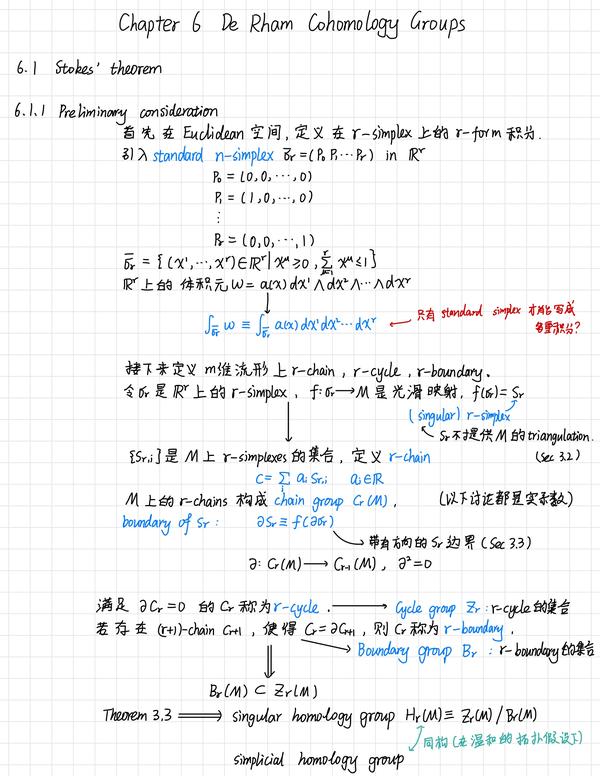 Chapter 6 De Rham Cohomology Groups
6.1 Stokes' theorem
6.1.1 Preliminary consideration
首先在 Euclidean 空间, 定义在 r-simplex 上的 r-form 积分.
引入 standard n-simplex σ̄r = (P₀ P₁ ⋯ Pr) in ℝʳ
P₀ = (0, 0, ⋯, 0)
P₁ = (1, 0, ⋯, 0)
⋮
Pr = (0, 0, ⋯, 1)
σ̄r = {(x¹, ⋯, xʳ) ∈ ℝʳ | x^μ ≥ 0, Σ_{μ=1}^r x^μ ≤ 1}
ℝʳ 上的 体积元 ω = a(x) dx¹ ∧ dx² ∧ ⋯ ∧ dxʳ
∫_{σ̄r} ω ≡ ∫_{σ̄r} a(x) dx¹ dx² ⋯ dxʳ
只有 standard simplex 才能写成
多重积分?
接下来定义 m维流形上 r-chain, r-cycle, r-boundary.
令 σr 是 ℝʳ 上的 r-simplex, f: σr ⟶ M 是光滑映射, f(σr) = Sr
(singular) r-simplex
Sr 不提供 M 的 triangulation.
(sec 3.2)
{Sr,i} 是 M 上 r-simplexes 的集合, 定义 r-chain
C = Σ_i ai Sr,i ai ∈ ℝ
M 上的 r-chains 构成 chain group Cr(M). (以下讨论都是实系数)
boundary of Sr : ∂Sr ≡ f(∂σr)
带有方向的 Sr 边界 (Sec 3.3)
∂: Cr(M) ⟶ Cr-1(M), ∂² = 0
满足 ∂Cr = 0 的 Cr 称为 r-cycle. ⟶ Cycle group Zr : r-cycle 的集合
若存在 (r+1)-chain Cr+1, 使得 Cr = ∂Cr+1, 则 Cr 称为 r-boundary.
Boundary group Br : r-boundary 的集合
Br(M) ⊂ Zr(M)
Theorem 3.3 ⟹ singular homology group Hr(M) ≡ Zr(M) / Br(M)
同构 (在温和的拓扑假设下)
simplicial homology group